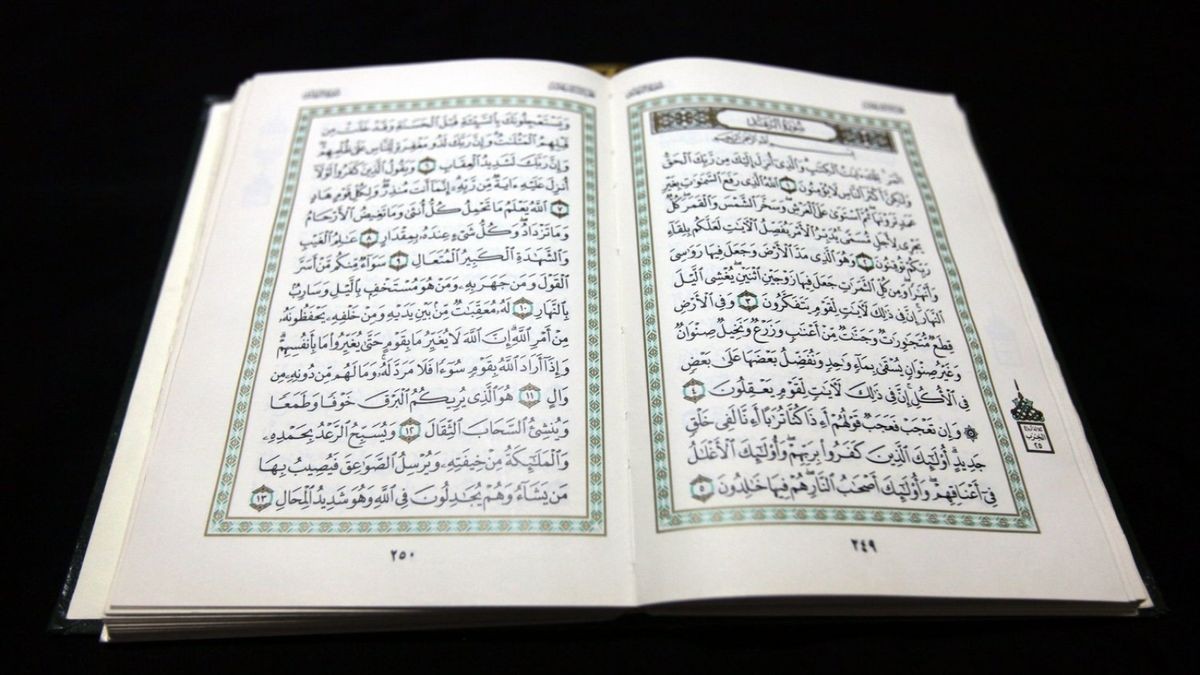 سُورَةُ الرَّعْدِ
بِسْمِ اللَّهِ الرَّحْمَٰنِ الرَّحِيمِ
الٓمٓر ۚ تِلْكَ ءَايَٰتُ الْكِتَٰبِ ۗ وَالَّذِىٓ أُنزِلَ إِلَيْكَ مِن رَّبِّكَ الْحَقُّ
وَلَٰكِنَّ أَكْثَرَ النَّاسِ لَا يُؤْمِنُونَ ١ اللَّهُ الَّذِى رَفَعَ السَّمَٰوَٰتِ بِغَيْرِ
عَمَدٍ تَرَوْنَهَا ۖ ثُمَّ اسْتَوَىٰ عَلَى الْعَرْشِ ۖ وَسَخَّرَ الشَّمْسَ وَالْقَمَرَ ۖ كُلٌّ
يَجْرِى لِأَجَلٍ مُّسَمًّى ۚ يُدَبِّرُ الْأَمْرَ يُفَصِّلُ الْءَايَٰتِ لَعَلَّكُم بِلِقَآءِ
رَبِّكُمْ تُوقِنُونَ ٢ وَهُوَ الَّذِى مَدَّ الْأَرْضَ وَجَعَلَ فِيهَا رَوَٰسِىَ
وَأَنْهَٰرًا ۖ وَمِن كُلِّ الثَّمَرَٰتِ جَعَلَ فِيهَا زَوْجَيْنِ اثْنَيْنِ ۖ يُغْشِى الَّيْلَ
النَّهَارَ ۚ إِنَّ فِى ذَٰلِكَ لَءَايَٰتٍ لِّقَوْمٍ يَتَفَكَّرُونَ ٣ وَفِى الْأَرْضِ
قِطَعٌ مُّتَجَٰوِرَٰتٌ وَجَنَّٰتٌ مِّنْ أَعْنَٰبٍ وَزَرْعٌ وَنَخِيلٌ صِنْوَانٌ
وَغَيْرُ صِنْوَانٍ يُسْقَىٰ بِمَآءٍ وَٰحِدٍ وَنُفَضِّلُ بَعْضَهَا عَلَىٰ بَعْضٍ
فِى الْأُكُلِ ۚ إِنَّ فِى ذَٰلِكَ لَءَايَٰتٍ لِّقَوْمٍ يَعْقِلُونَ ٤
۞ وَإِن تَعْجَبْ فَعَجَبٌ قَوْلُهُمْ أَءِذَا كُنَّا تُرَٰبًا أَءِنَّا لَفِى خَلْقٍ
جَدِيدٍ ۗ أُو۟لَٰٓئِكَ الَّذِينَ كَفَرُوا۟ بِرَبِّهِمْ ۖ وَأُو۟لَٰٓئِكَ الْأَغْلَٰلُ
فِىٓ أَعْنَاقِهِمْ ۖ وَأُو۟لَٰٓئِكَ أَصْحَٰبُ النَّارِ ۖ هُمْ فِيهَا خَٰلِدُونَ ٥
الحزب
٢٥
٢٤٩
وَيَسْتَعْجِلُونَكَ بِالسَّيِّئَةِ قَبْلَ الْحَسَنَةِ وَقَدْ خَلَتْ مِن
قَبْلِهِمُ الْمَثُلَٰتُ ۗ وَإِنَّ رَبَّكَ لَذُو مَغْفِرَةٍ لِّلنَّاسِ عَلَىٰ ظُلْمِهِمْ ۖ
وَإِنَّ رَبَّكَ لَشَدِيدُ الْعِقَابِ ٦ وَيَقُولُ الَّذِينَ كَفَرُوا۟ لَوْلَآ
أُنزِلَ عَلَيْهِ ءَايَةٌ مِّن رَّبِّهِۦٓ ۗ إِنَّمَآ أَنتَ مُنذِرٌ ۖ وَلِكُلِّ قَوْمٍ هَادٍ
٧ اللَّهُ يَعْلَمُ مَا تَحْمِلُ كُلُّ أُنثَىٰ وَمَا تَغِيضُ الْأَرْحَامُ
وَمَا تَزْدَادُ ۖ وَكُلُّ شَىْءٍ عِندَهُۥ بِمِقْدَارٍ ٨ عَٰلِمُ الْغَيْبِ
وَالشَّهَٰدَةِ الْكَبِيرُ الْمُتَعَالِ ٩ سَوَآءٌ مِّنكُم مَّنْ أَسَرَّ
الْقَوْلَ وَمَن جَهَرَ بِهِۦ وَمَنْ هُوَ مُسْتَخْفٍۭ بِالَّيْلِ وَسَارِبٌۢ
بِالنَّهَارِ ١٠ لَهُۥ مُعَقِّبَٰتٌ مِّنۢ بَيْنِ يَدَيْهِ وَمِنْ خَلْفِهِۦ يَحْفَظُونَهُۥ
مِنْ أَمْرِ اللَّهِ ۗ إِنَّ اللَّهَ لَا يُغَيِّرُ مَا بِقَوْمٍ حَتَّىٰ يُغَيِّرُوا۟ مَا بِأَنفُسِهِمْ ۗ
وَإِذَآ أَرَادَ اللَّهُ بِقَوْمٍ سُوٓءًا فَلَا مَرَدَّ لَهُۥ ۚ وَمَا لَهُم مِّن دُونِهِۦ مِن
وَالٍ ١١ هُوَ الَّذِى يُرِيكُمُ الْبَرْقَ خَوْفًا وَطَمَعًا
وَيُنشِئُ السَّحَابَ الثِّقَالَ ١٢ وَيُسَبِّحُ الرَّعْدُ بِحَمْدِهِۦ
وَالْمَلَٰٓئِكَةُ مِنْ خِيفَتِهِۦ وَيُرْسِلُ الصَّوَٰعِقَ فَيُصِيبُ بِهَا
مَن يَشَآءُ وَهُمْ يُجَٰدِلُونَ فِى اللَّهِ وَهُوَ شَدِيدُ الْمِحَالِ ١٣
٢٥٠